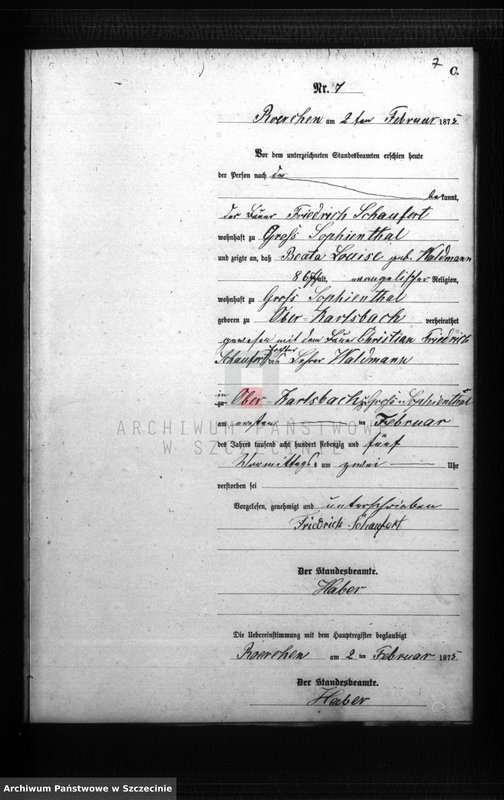 7
C.
Nr. 7
Roerchen am 2 ten Februar 1875
Vor dem unterzeichneten Standesbeamten erschien heute
der Person nach
bekannt,
der Bauer Friedrich Schaufert
wohnhaft zu Groß Sophienthal
und zeigte an, daß Beata Louise geb. Waldmann
alt, evangelischer Religion,
wohnhaft zu Groß Sophienthal
geboren zu Ober-Karlsbach verheirathet
gewesen mit dem Bauer Christian Friedrich
Schaufert Tochter des Lehrer Waldmann
in
zu Ober-Karlsbach zu Groß-Sophienthal
am ersten ten Februar
des Jahres tausend acht hundert siebenzig und fünf
Vormittags um zwei Uhr
verstorben sei
Vorgelesen, genehmigt und unterschrieben
Friedrich Schaufert
Der Standesbeamte.
Haber
Die Uebereinstimmung mit dem Hauptregister beglaubigt
Roerchen am 2 ten Februar 1875
Der Standesbeamte.
Haber
ARCHIWUM PAŃSTWOWE
W SZCZECINIE
Archiwum Państwowe w Szczecinie